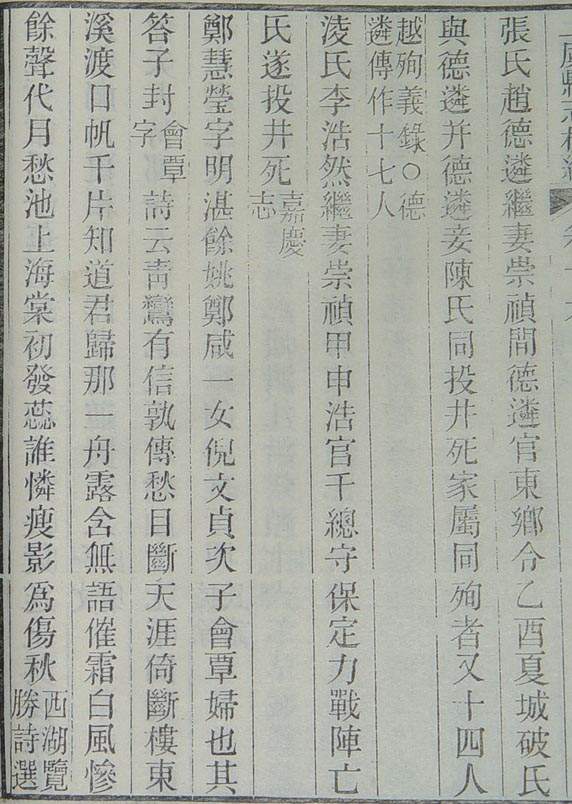 縣志校續
張氏趙德遴繼妻崇禎間德遴官東鄉令乙酉夏城破氏
與德遴并德遴妾陳氏同投井死家屬同殉者又十四人
越殉義錄○德
遴傳作十七人
淩氏李浩然繼妻崇禎甲申浩官千總守保定力戰陣亡
氏遂投井死嘉慶志
鄭慧瑩字明湛餘姚鄭咸一女倪文貞次子會覃婦也其
答子封會覃字詩云青鸞有信孰傳愁目斷天涯倚斷樓東
溪渡口帆千片知道君歸那一舟露含無語催霜白風慘
餘聲代月愁池上海棠初發蕊誰憐瘦影爲傷秋西湖覽勝詩選